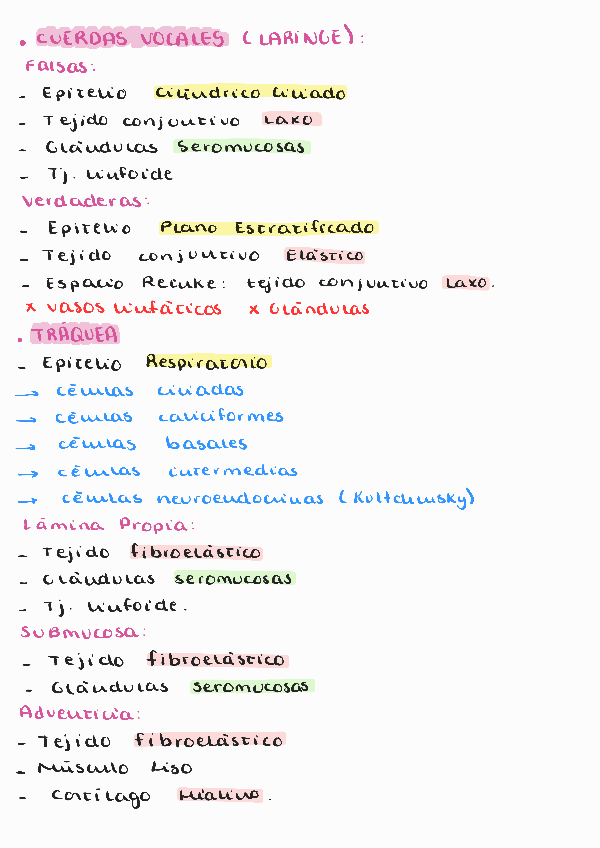 . CUERDAS VOCALES (LARINGE):
Falsas:
- Epitelio Cilíndrico Ciliado
- Tejido conjuntivo Laxo
- Glándulas Seromucosas
- Tj. linfoide
Verdaderas:
- Epitelio Plano Estratificado
- Tejido conjuntivo Elástico
- Espacio Reinke: tejido conjuntivo Laxo.
x vasos linfáticos x Glándulas
. TRÁQUEA
- Epitelio Respiratorio
→ células ciliadas
→ células caliciformes
→ células basales
→ células intermedias
→ células neuroendocrinas (Kultchinsky)
Lámina Propia:
- Tejido fibroelástico
- Glándulas seromucosas
- Tj. linfoide.
Submucosa:
- Tejido fibroelástico
- Glándulas seromucosas
Adventicia:
- Tejido fibroelástico
- Músculo Liso
- Cartílago Hialino.